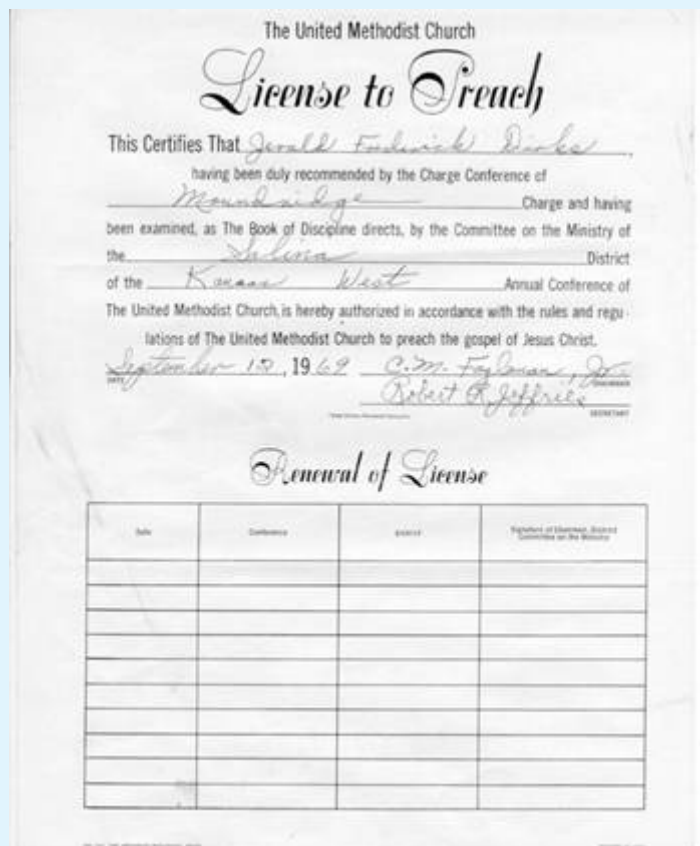 The United Methodist Church
License to Preach
This Certifies That Jerald Frederick Dirks,
having been duly recommended by the Charge Conference of
Moundridge Charge and having
been examined, as The Book of Discipline directs, by the Committee on the Ministry of
the Salina District
of the Kansas West Annual Conference of
The United Methodist Church, is hereby authorized in accordance with the rules and regu-
lations of The United Methodist Church to preach the gospel of Jesus Christ.
September 10, 1969 C. M. Fogleman, Jr.
DATE CHAIRMAN
Robert R. Jeffries
SECRETARY
Renewal of License
Date Conference District Signature of Chairman, District
Committee on the Ministry